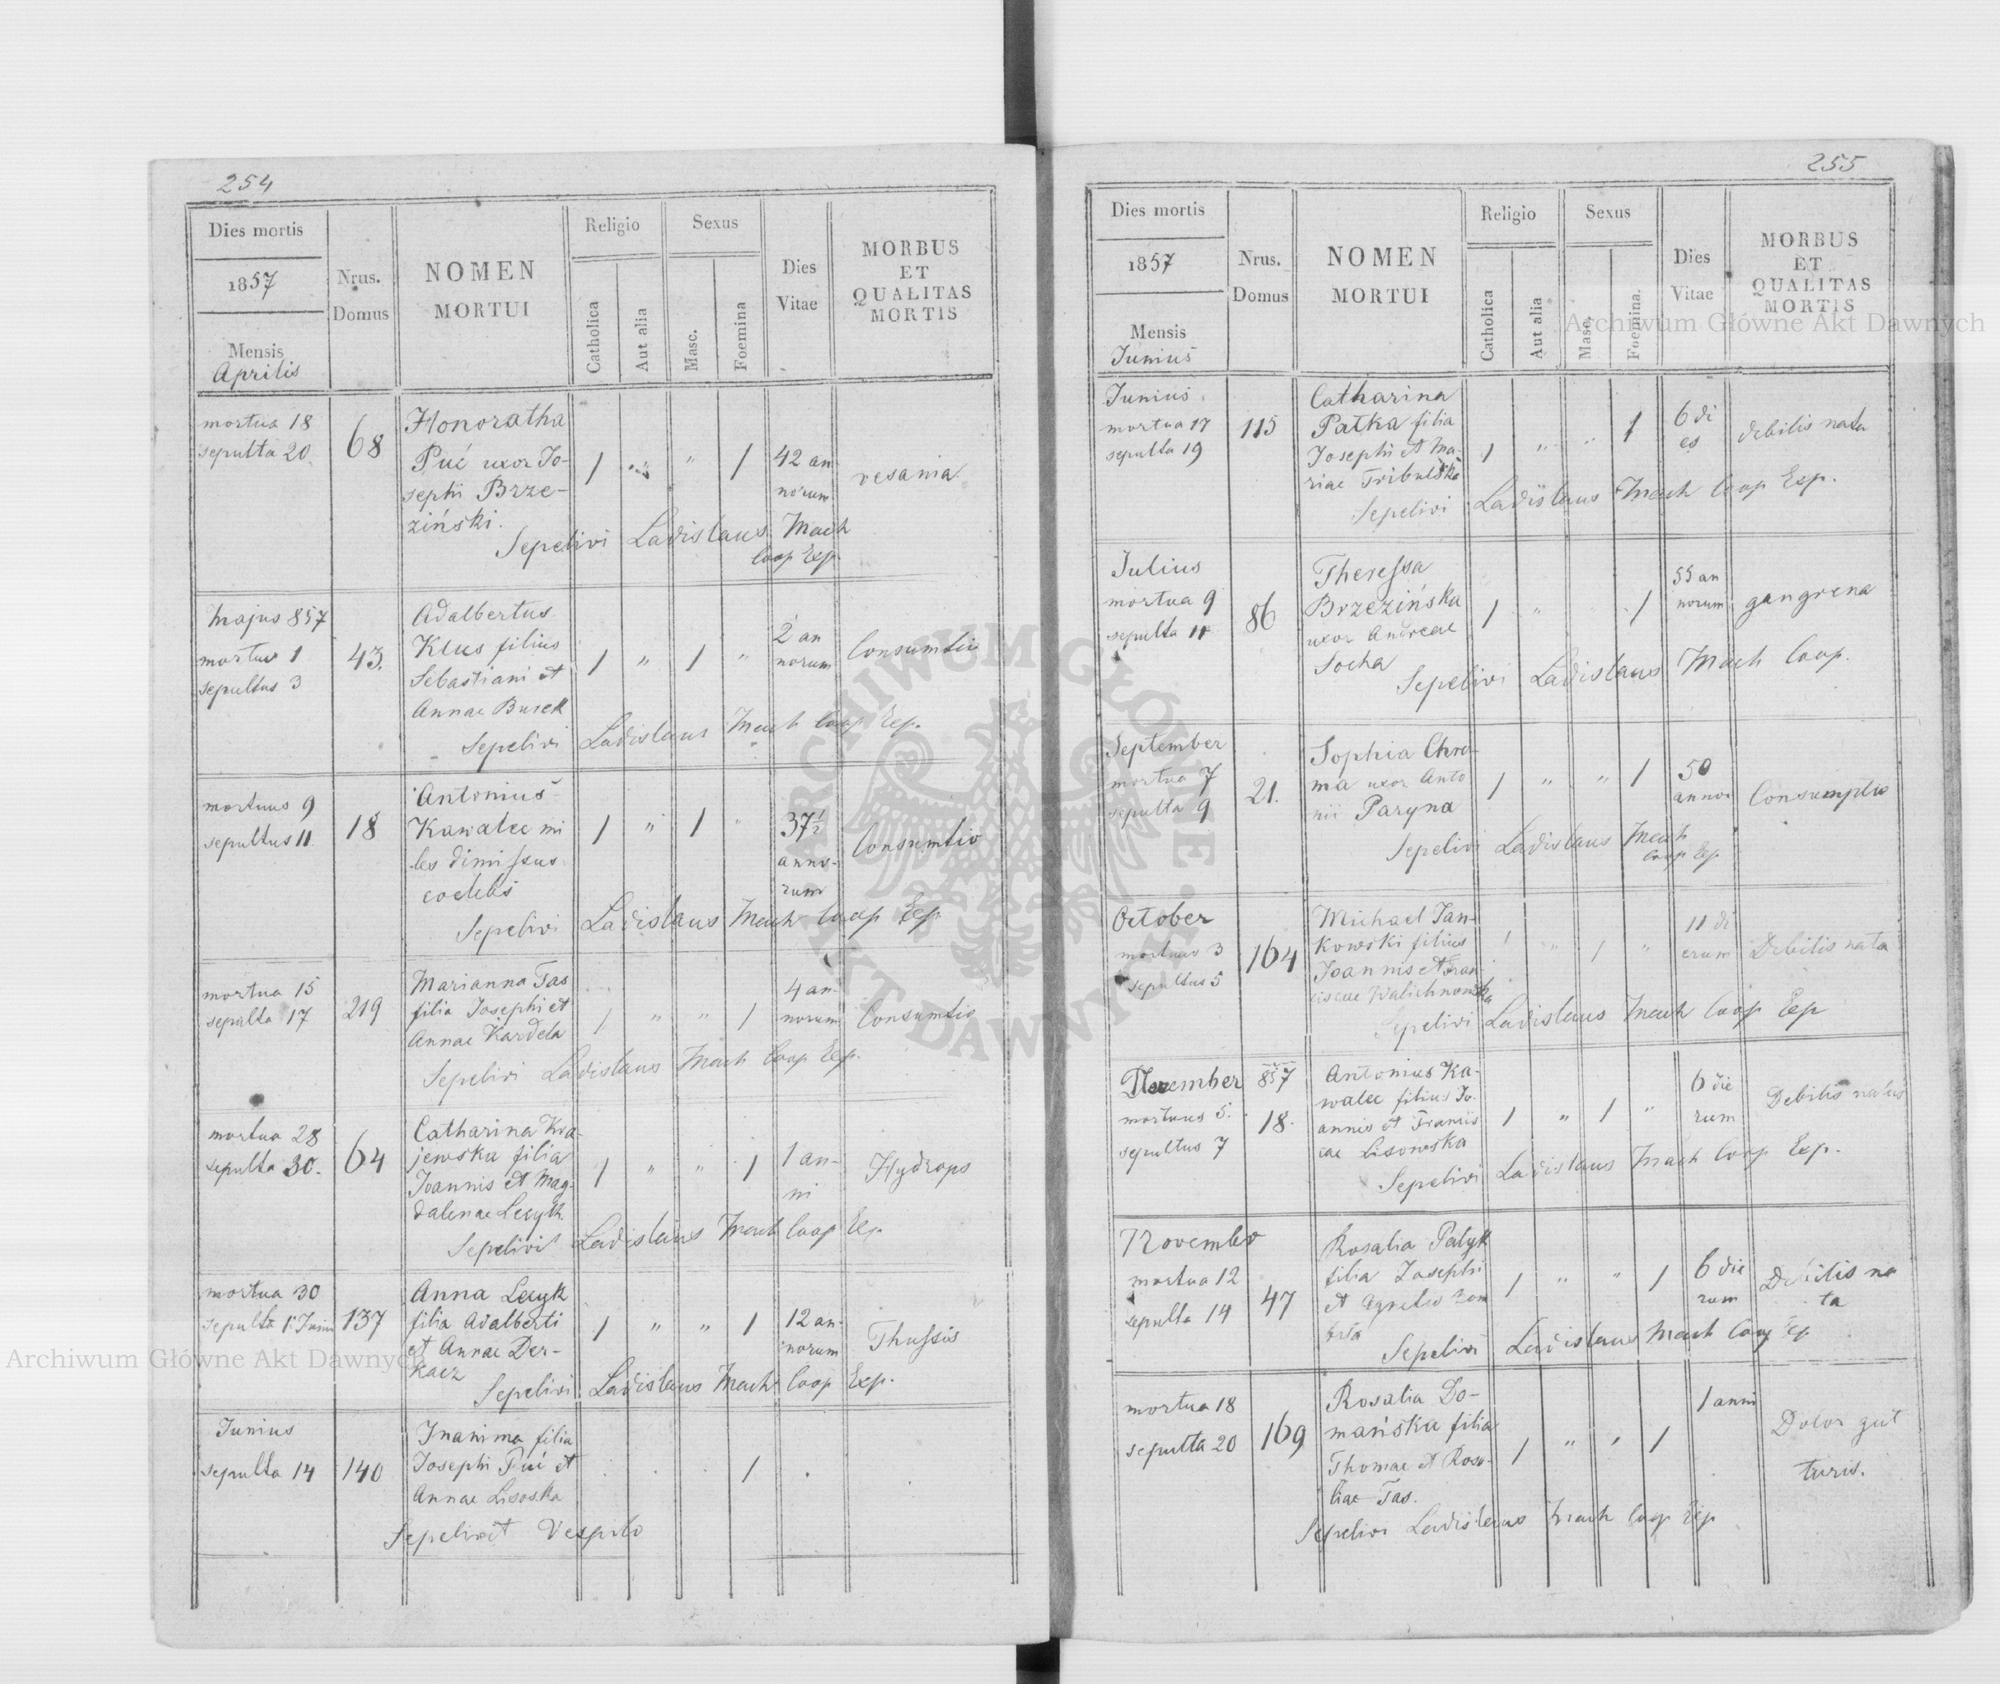 254
Dies mortis
1857
Mensis
Aprilis
Nrus.
Domus
NOMEN
MORTUI
Religio
Catholica
Aut alia
Sexus
Masc.
Foemina
Dies
Vitae
MORBUS
ET
QUALITAS
MORTIS
mortua 18
sepulta 20
68
Honoratha
Puć uxor Jo-
sephi Brze-
ziński.
1 " " 1
42 an
norum
vesania
Sepelivi Ladislaus Mach
Coop Exp.
Majus 857
mortuus 1
sepultus 3
43.
Adalbertus
Klus filius
Sebastiani et
Annae Burek
1 " 1 "
2 an
norum
Consumtio
Sepelivi Ladislaus Mach Coop Exp.
mortuus 9
sepultus 11
18
Antonius
Kawalec mi
les dimissus
coelebs
1 " 1 "
37 1/2
anno-
rum
Consumtio
Sepelivi Ladislaus Mach Coop Exp
mortua 15
sepulta 17
219
Marianna Tas
filia Josephi et
Annae Kardela
1 " " 1
4 an-
norum
Consumtio
Sepelivi Ladislaus Mach Coop Exp.
mortua 28
sepulta 30.
64
Catharina Kra-
jewska filia
Joannis et Mag-
dalenae Lecyk
1 " " 1
1 an-
ni
Hydrops
Sepelivit Ladislaus Mach Coop Exp
mortua 30
sepulta 1 Junii
137
Anna Lecyk
filia Adalberti
et Annae Der-
kacz
1 " " 1
12 an-
norum
Thussis
Sepelivi Ladislaus Mach Coop Exp.
Junius
sepulta 14
140
Inanima filia
Josephi Puć et
Annae Lisoska
1
Sepelivit Vespilo
255
Dies mortis
1857
Mensis
Junius
Nrus.
Domus
NOMEN
MORTUI
Religio
Catholica
Aut alia
Sexus
Masc.
Foemina.
Dies
Vitae
MORBUS
ET
QUALITAS
MORTIS
Junius
mortua 17
sepulta 19
115
Catharina
Pałka filia
Josephi et Ma-
riae Tribulska
1 " " 1
6 di
es
debilis nata
Sepelivi Ladislaus Mach Coop Exp.
Julius
mortua 9
sepulta 11
86
Theressa
Brzezińska
uxor Andreae
Socha
1 " 1
55 an
norum
gangrena
Sepelivi Ladislaus Mach Coop.
September
mortua 7
sepulta 9
21.
Sophia Chro-
ma uxor Anto
nii Paryna
1 " " 1
50
annor
Consumptio
Sepelivi Ladislaus Mach
Coop Exp
October
mortuus 3
sepultus 5
164
Michael Jan-
kowski filius
Joannis et Fran
ciscae Walichnowska
1 " 1 "
11 di
erum
Debilis nata
Sepelivi Ladislaus Mach Coop Exp
November
mortuus 5.
sepultus 7
857
18.
Antonius Ka-
walec filius Jo-
annis et Francis
cae Lisowska
1 " 1 "
6 die
rum
Debilis natus
Sepelivi Ladislaus Mach Coop Exp.
November
mortua 12
sepulta 14
47
Rosalia Patyk
filia Josephi
et Agnetis
1 " " 1
6 die
rum
Debilis na
ta
Sepelivi Ladislaus Mach Coop Exp
mortua 18
sepulta 20
169
Rosalia Do-
mańska filia
Thomae et Rosa-
liae Tas.
1 " " 1
1 anni
Dolor gut
turis.
Sepelivi Ladislaus Mach Coop Exp
Archiwum Główne Akt Dawnych
Archiwum Główne Akt Dawnych
ARCHIWUM GŁÓWNE AKT DAWNYCH